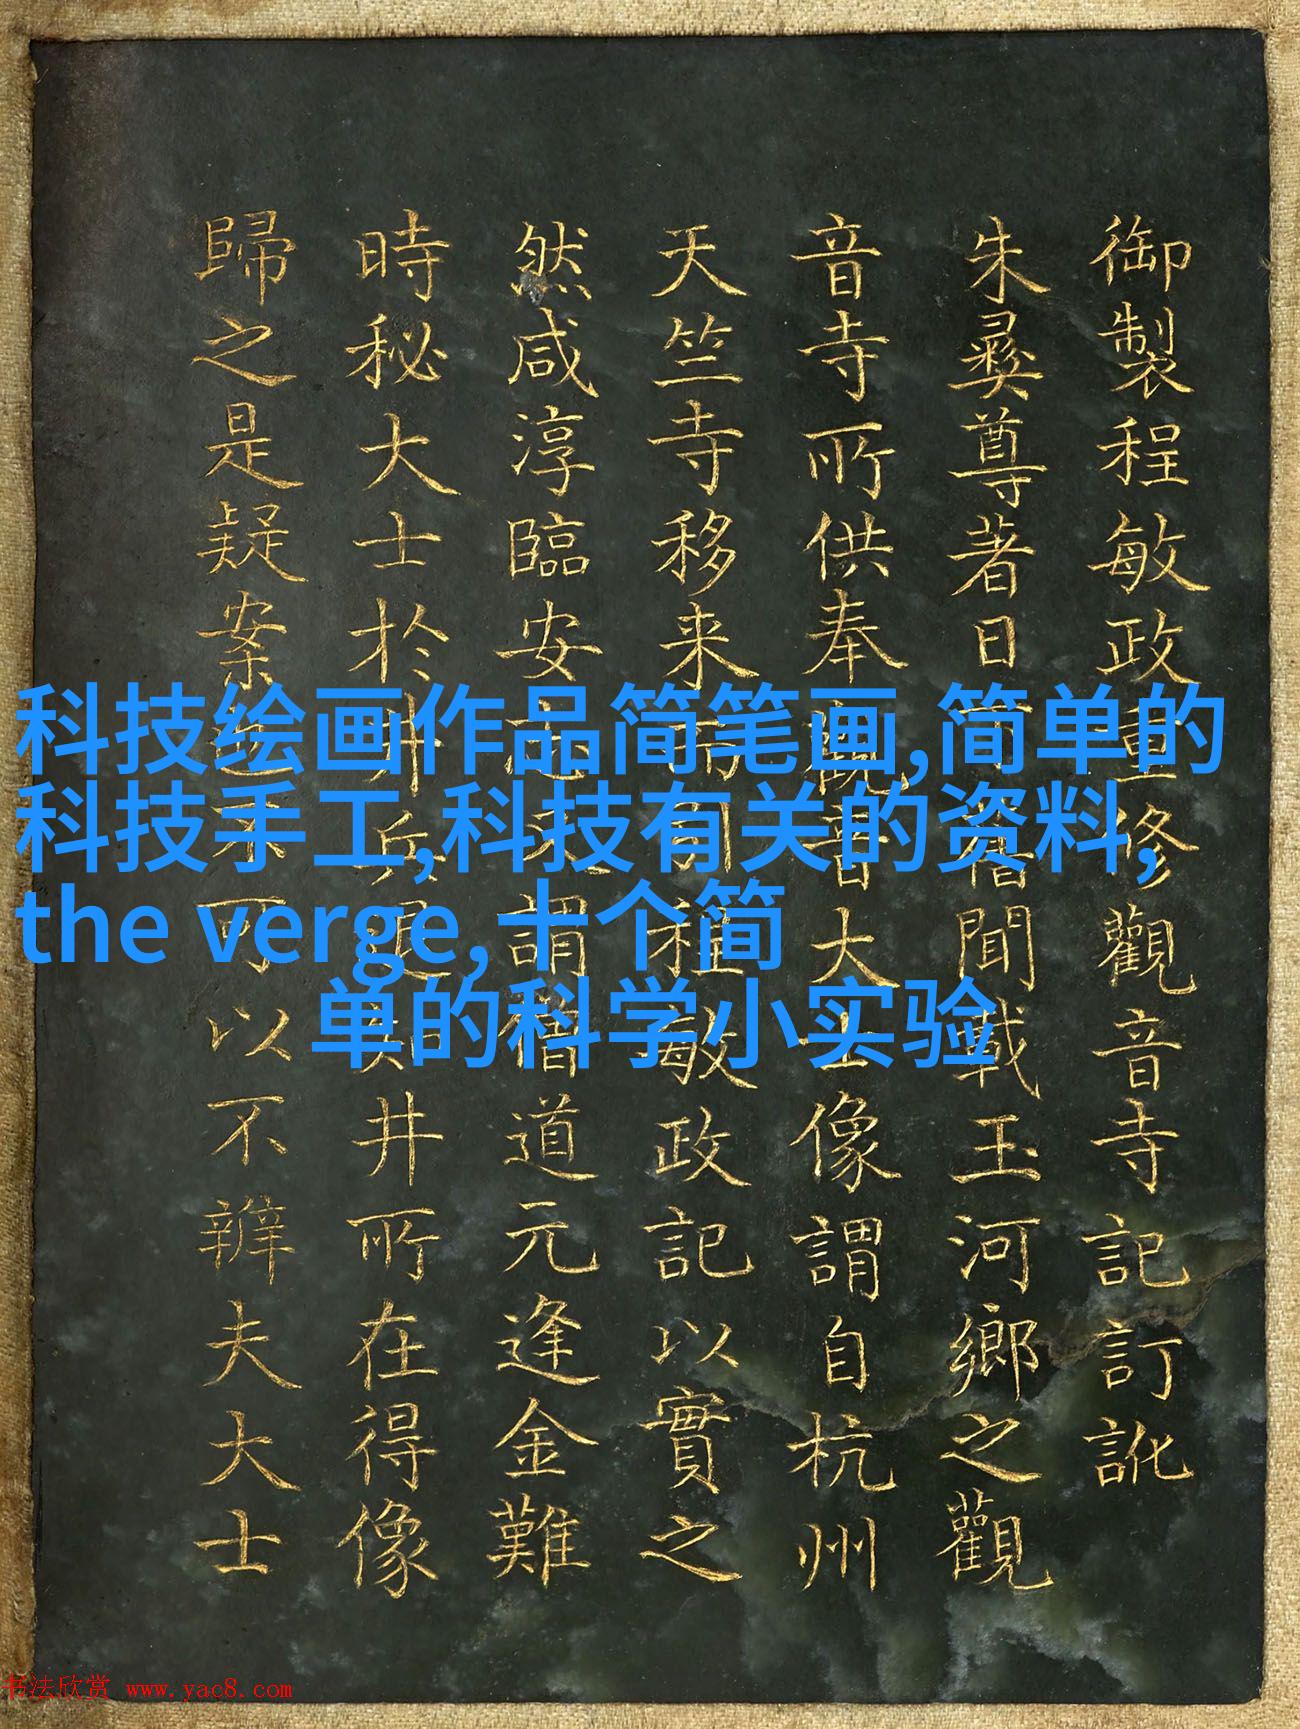 御製程敏政重修觀音寺記訂訛
朱彝尊著日聞載玉河鄉之觀
音寺所供奉觀音大士像謂自杭州
天竺寺移来而引程敏政記以實之
然咸淳臨安志謂僧道元逢金難
時秘大士於井兵井所在得像
歸之是疑案不可以不辨夫大士
科技绘画作品简笔画,简单的
科技手工,科技有关的资料,
the verge,十个简
单的科学小实验
书法欣赏 www.yac8.com